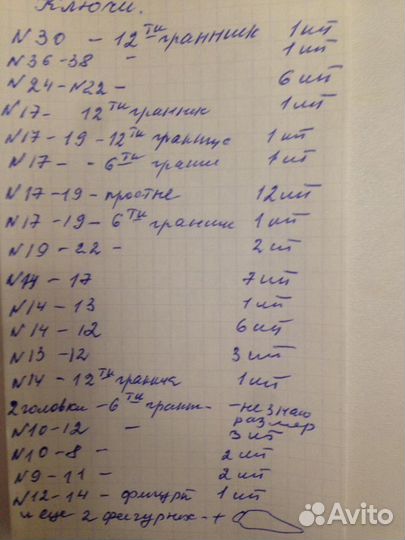 Ключи.
N30 - 12ти гранник 1 шт
N36-38 " 1 шт
N24-N22 - 6 шт
N17- 12ти гранник 1 шт
N17-19-12ти гранник 1 шт
N17- -6ти грани 1 шт
N17-19-простые 12 шт
N17-19-6ти гранник 1 шт
N19-22- 2 шт
N14-17 7 шт
N14-13 1 шт
N14-12 6 шт
N13-12 3 шт
N14-12ти гранича 1 шт
2 головки -6ти грант- -не знаю размер
N10-12 " 3 шт
N10-8 " 2 шт
N9-11 - 2 шт
N12-14- фигурн 1 шт
и еще 2 фигурных - +
Avito